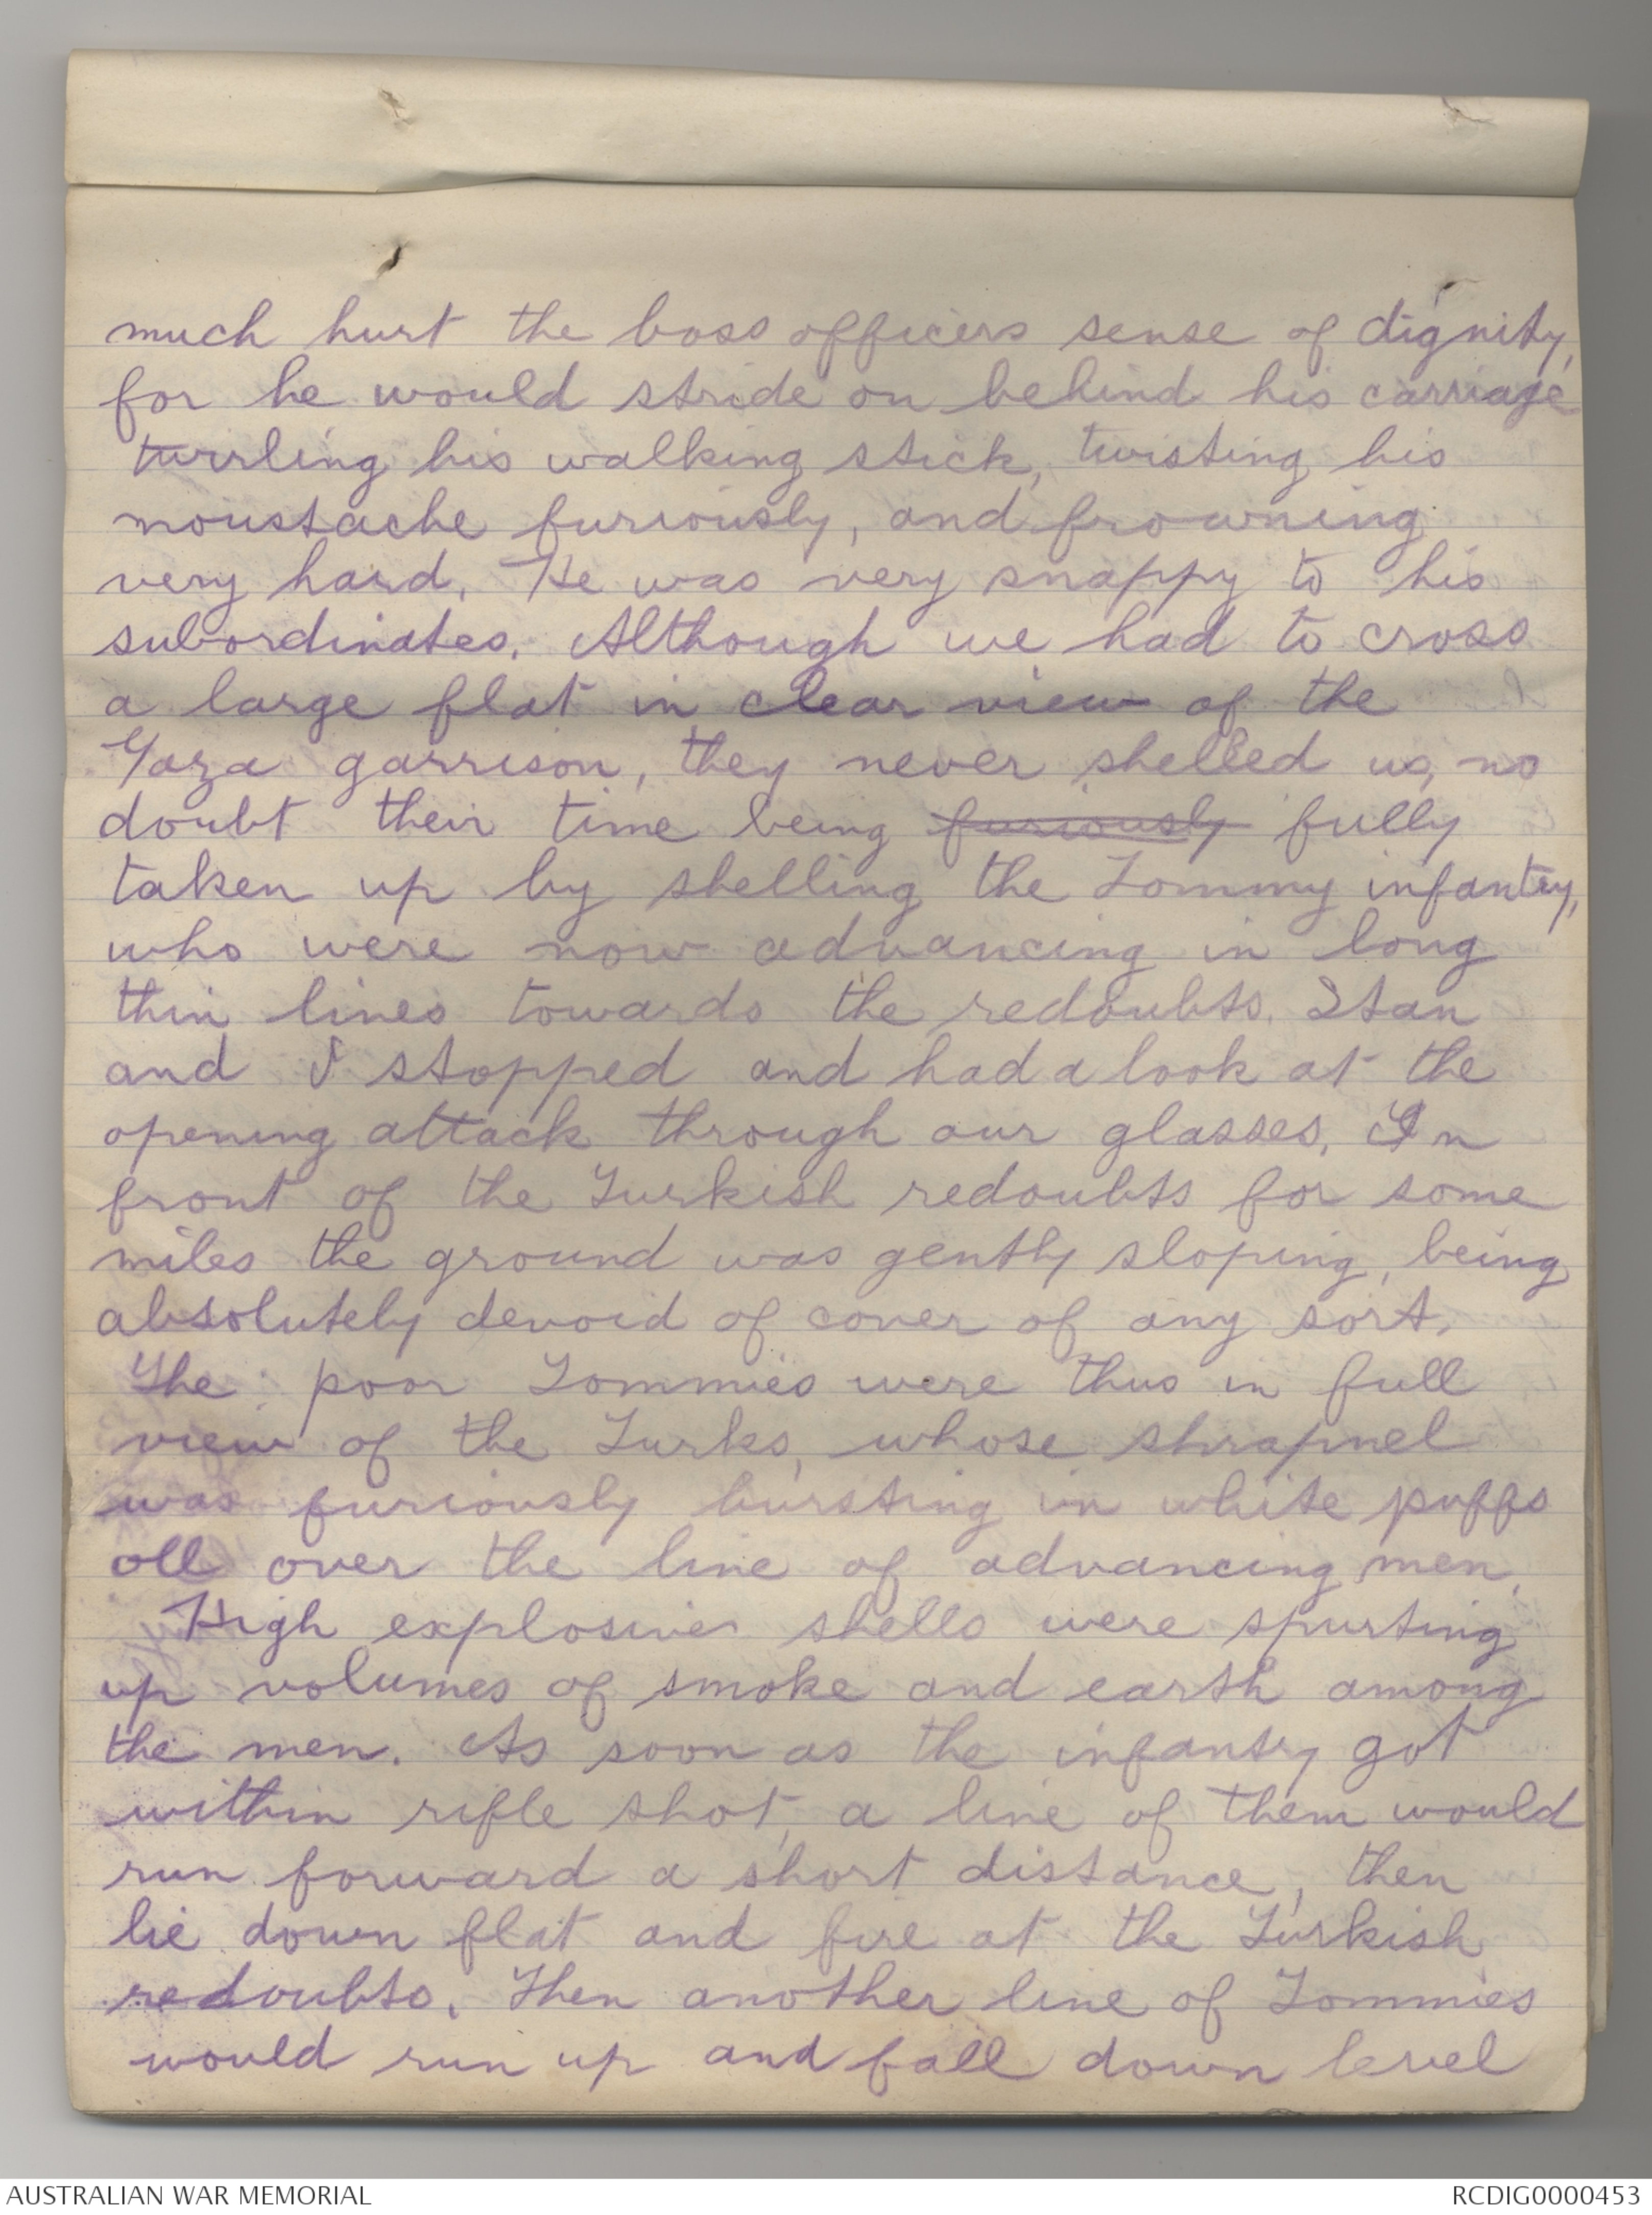 much hurt the boss officers sense of dignity,
for he would stride on behind his carriage
twirling his walking stick, twisting his
moustache furiously, and frowning
very hard. He was very snappy to his
subordinates. Although we had to cross
a large flat in clear view of the
Gaza garrison, they never shelled us, no
doubt their time being furiously fully
taken up by shelling the Tommy infantry,
who were now advancing in long
thin lines towards the redoubts. Stan
and I stopped and had a look at the
opening attack through our glasses. In
front of the Turkish redoubts for some
miles the ground was gently sloping, being
absolutely devoid of cover of any sort.
The poor Tommies were thus in full
view of the Turks, whose shrapnel
was furiously bursting in white puffs
all over the line of advancing men.
High explosive shells were spurting
up volumes of smoke and earth among
the men. As soon as the infantry got
within rifle shot, a line of them would
run forward a short distance, then
lie down flat and fire at the Turkish
redoubts. Then another line of Tommies
would run up and fall down level
AUSTRALIAN WAR MEMORIAL
RCDIG0000453